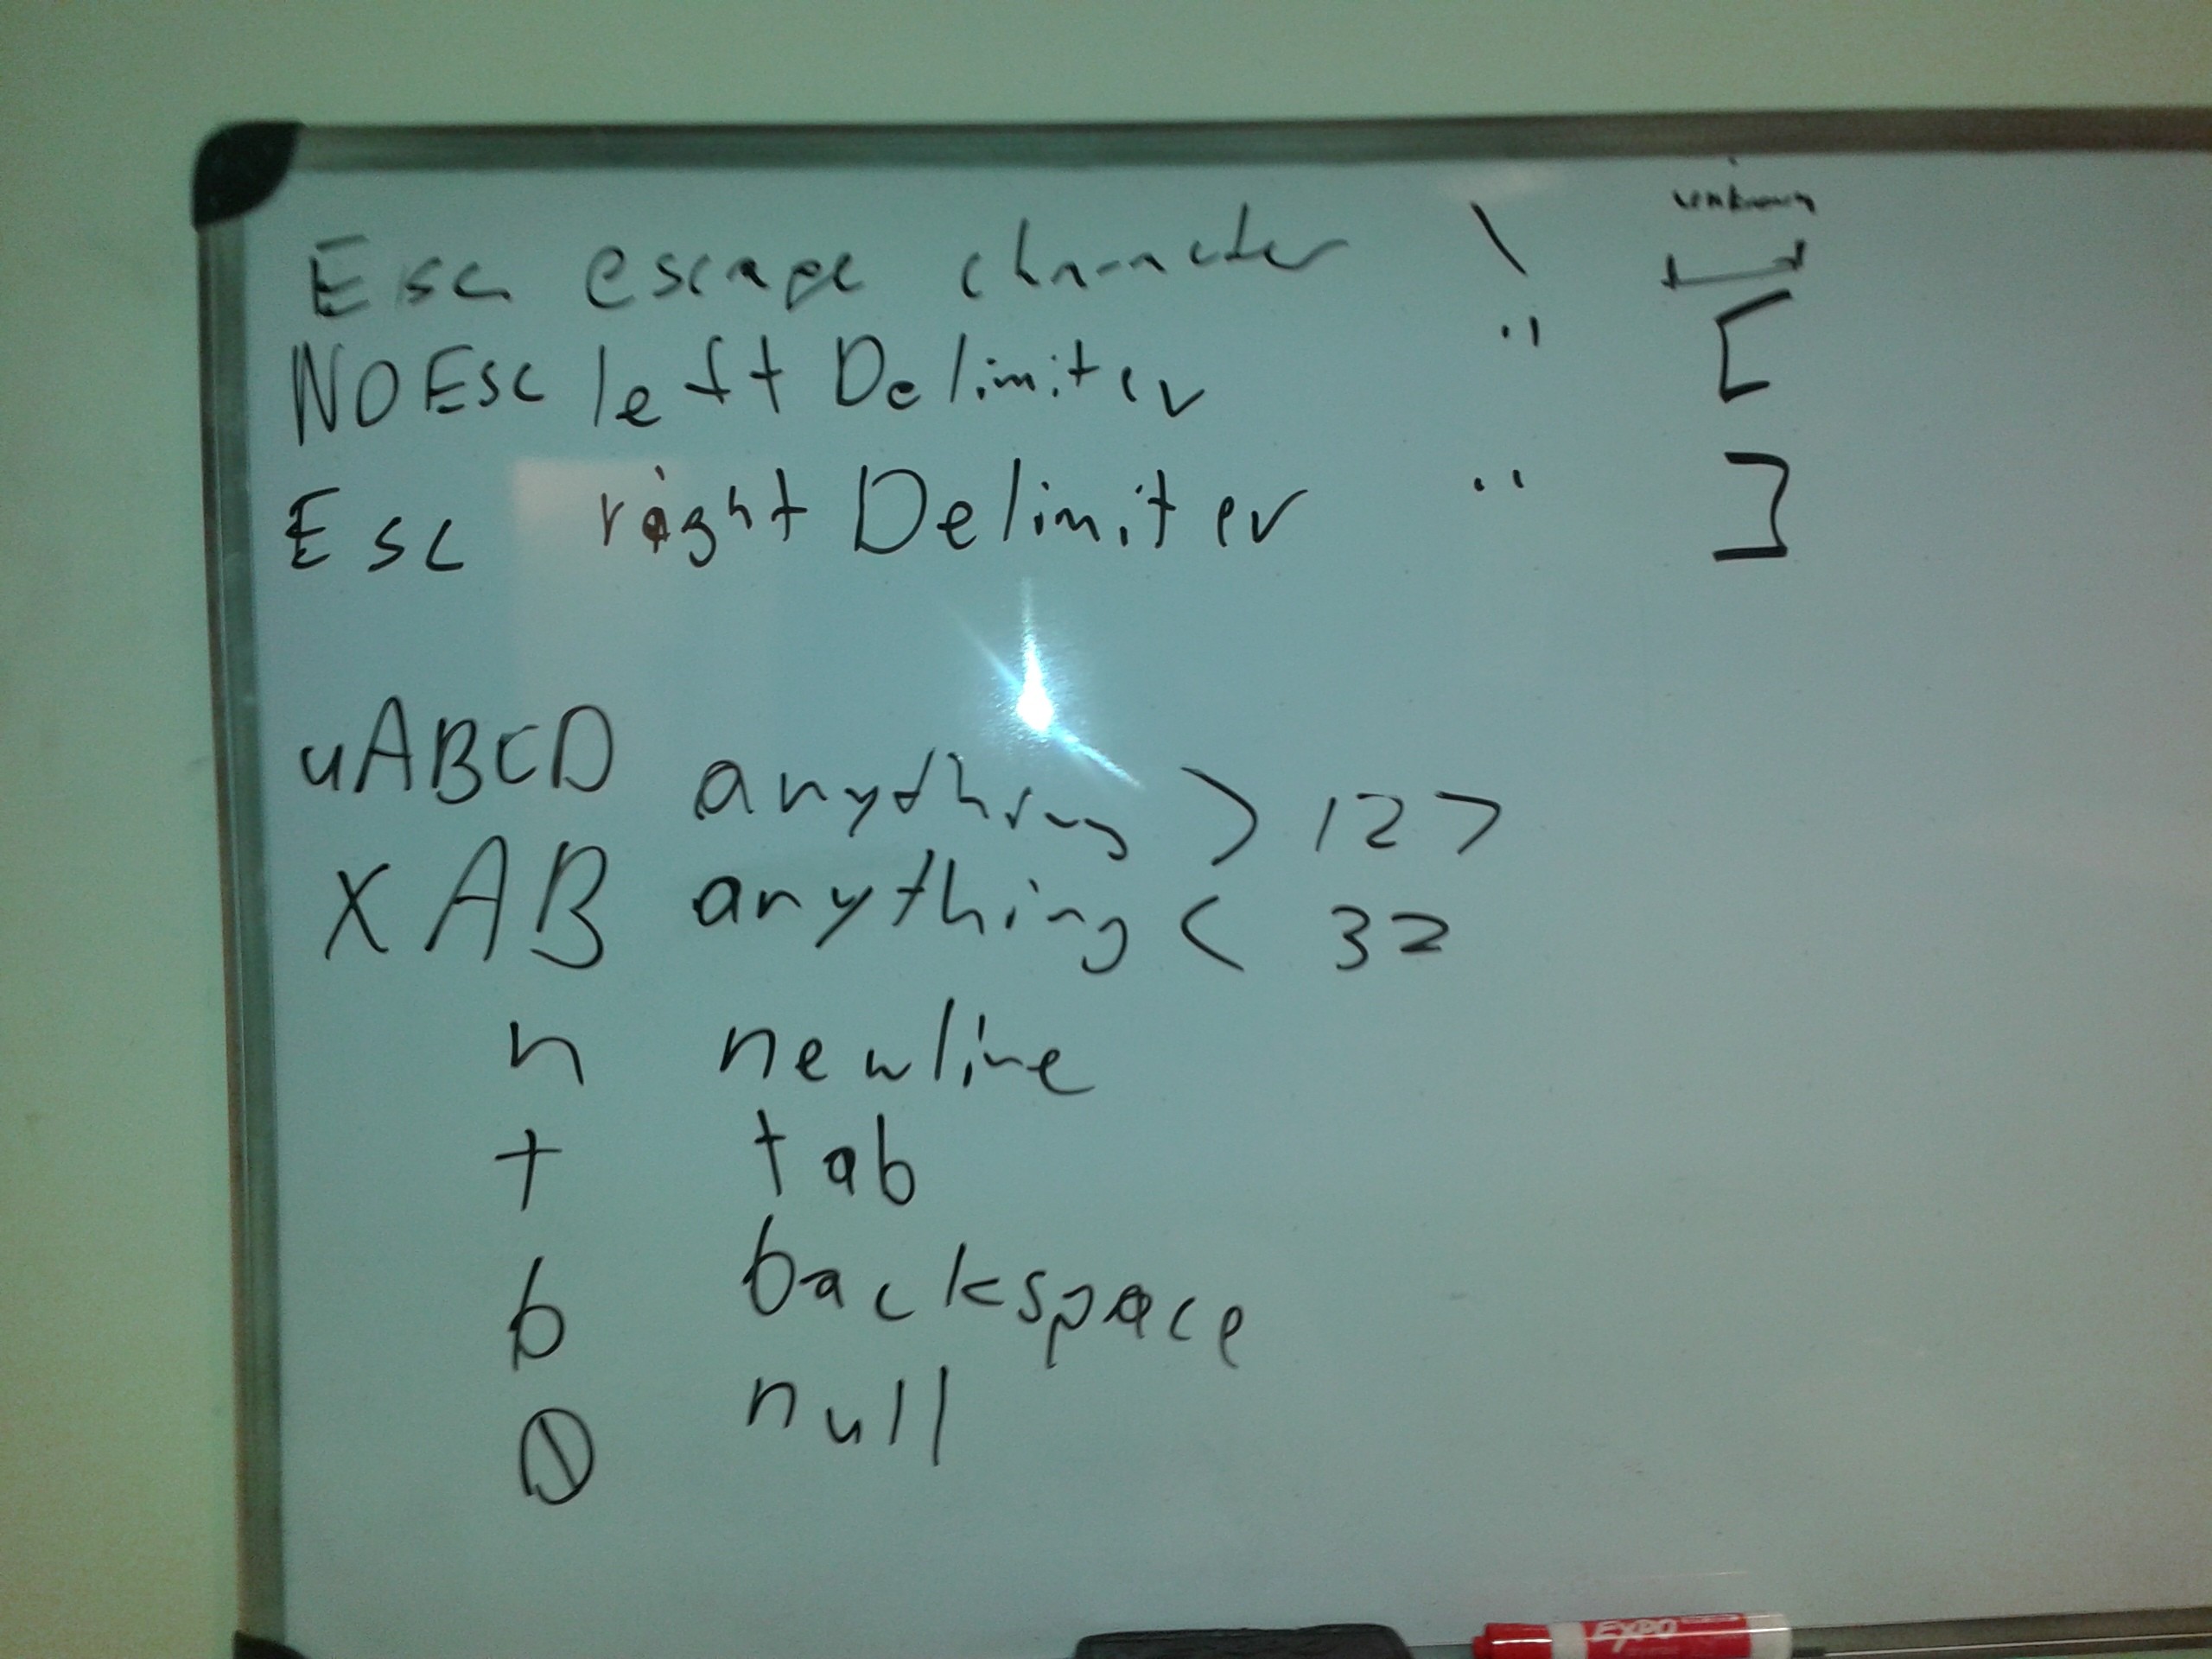 unknown
Esc escape character \
NOEsc left Delimiter " [
Esc right Delimiter " ]
uABCD anything > 127
XAB anything < 32
n newline
t tab
b backspace
0 null
EXPO